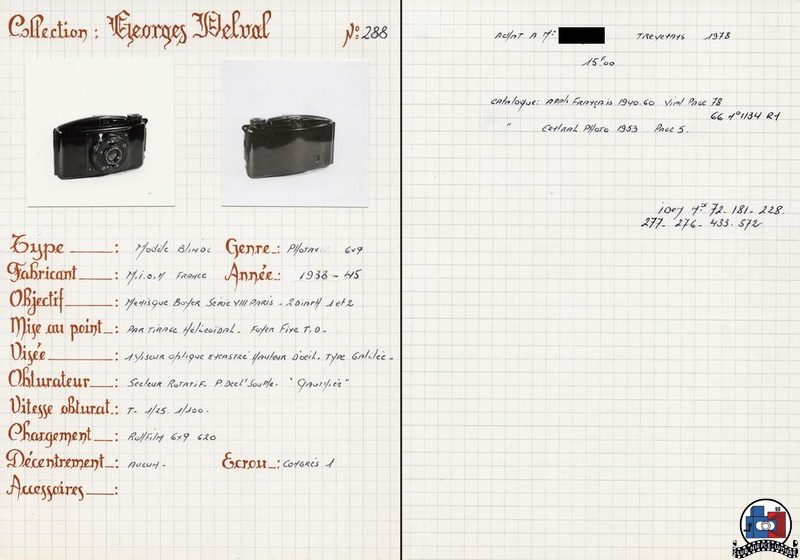 Collection : Georges Delval Nº 288
Type : Modèle Blindé Genre : Photax 6x9
Fabricant : M.I.O.M France Année : 1938 - 45
Objectif : Menisque Boyer Série VIII Paris - 2 Diaph 1 et 2
Mise au point : Par Tirage Hélicoïdal. Foyer Fixe T.D-
Visée : 1 Viseur optique encastré Hauteur D'oeil. Type Galilée -
Obturateur : Secteur Rotatif. P. Decl' Souple. "Gauthier"
Vitesse obturat. : T- 1/25. 1/100.
Chargement : Rollfilm 6x9 620
Décentrement : Aucun. Ecrou : Congrès 1
Accessoires :
Achat A Mr 1978
15F00
Catalogue: App. Français 1940.60 Vial Page 78
66 nº 1134 R1
" Central Photo 1953 Page 5.
idem Nº 72. 181. 228.
277. 276. 433. 572